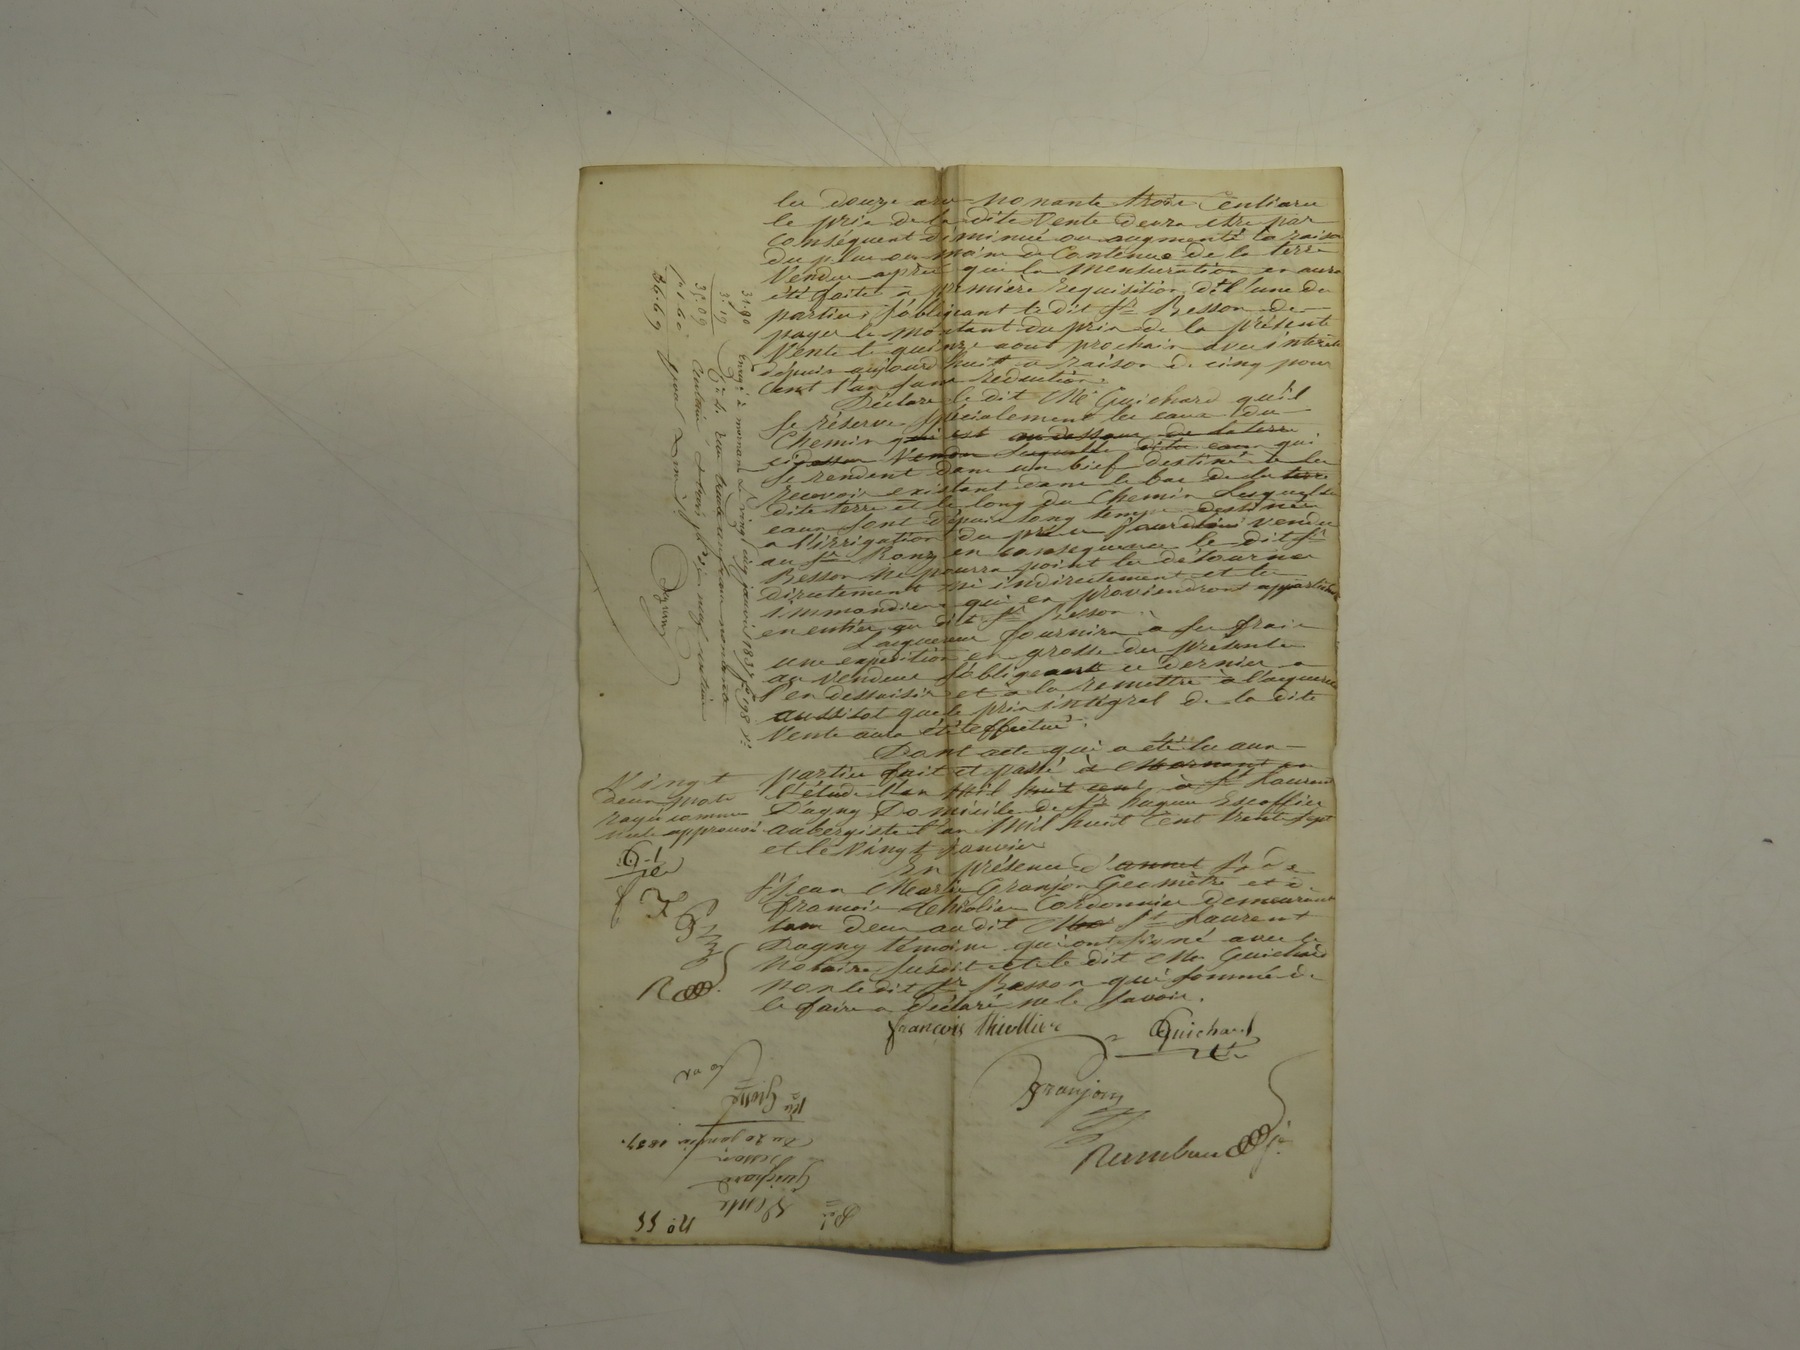 les douze ares nonante trois Centiares
le prix de la dite Vente devra etre par
Conséquent diminué ou augmenté à raison
du plus ou moins de Contenue de la terre
Vendue après que la mensuration en aura
été faite à première requisition de l'une des
parties, s'obligeant le dit Sr Besson de
payer le montant du prix de la présente
Vente le quinze aout prochain avec intérêts
depuis aujourd'huit à raison de cinq pour
Cent l'an sans réduction.
Déclare le dit Mr Guichard qu'il
se réserve spécialement les eaux du
Chemin qui est au dessous de la terre
ci dessus Vendue lesquelles dites eaux qui
se rendent dans un bief destiné à les
recevoir existant dans le bas de la terre
dite terre et le long du Chemin Lesquelles
eaux sont depuis long temps destinées
a l'irrigation du pré vendu
au Sr en conséquence le dit Sr
Besson ne pourra point les détourner
directement ni indirectement et les
immondices qui en proviendront appartiendront
en entier au dit Sr Besson.
L'acquereur fournira à ses frais
une expédition en grosse des présentes
au Vendeur s'obligeant ce dernier a
s'en dessaisir et à la remettre à l'acquereur
aussitot que le prix intégral de la dite
Vente aura été effectué.
Dont acte qui a été lu aux
parties fait et passé à Mornant en
l'étude L'an Mil huit cent à St Laurent
D'agny Domicile de Sr Escoffier
aubergiste l'an Mil huit Cent trente sept
et le Vingt janvier
En présence d'
Sr Jean Marie Granjon Géomètre et de
francois thiolier Cordonnier demeurant
tous deux au dit St Laurent
Dagny témoins qui ont signé avec le
Notaire susdit et le dit Mr Guichard
Non le dit Sr Besson qui sommé de
le faire a déclaré ne le savoir.
françois thiollier
Guichard
Granjon
Vingt
deux mots
rayés comme
nuls approuvés
31.90
3.19
35.09
1.60
36.69
enregé à mornant le vingt cinq janvier 1837 fo 198
Reçu trente un francs nonante
centimes
pour
No 55
Vente
Guichard
à Besson
Du 20 janvier 1837.
Grosse